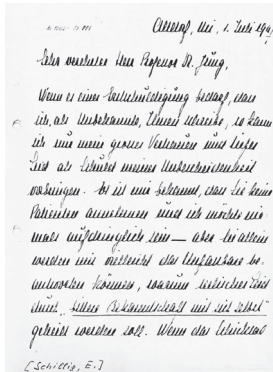 Sehr verehrter Herr Professor Dr. Jung,
Wenn es einer Entschuldigung bedarf, dass
ich, als Unbekannte, Ihnen schreibe, so kann
ich nur mein grosses Vertrauen und tiefes
Leid als Schuld meiner Unbescheidenheit
vorbringen. Es ist mir bekannt, dass Sie keine
Patienten annehmen und ich möchte nie-
mals aufdringlich sein — aber Sie allein
werden mir vielleicht das be-
antworten können, warum seelisches Leid
durch "
geheilt werden soll. Wenn das Schicksal
[Schillig, E.]